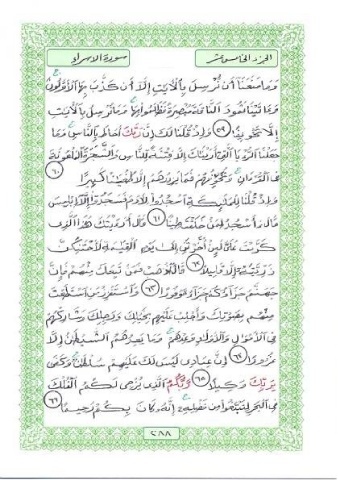 الجزء الخامس عشر
سورة الاسراء
وَمَا مَنَعَنَا أَن نُّرْسِلَ بِالْآيَٰتِ إِلَّا أَن كَذَّبَ بِهَا الْأَوَّلُونَ
وَءَاتَيْنَا ثَمُودَ النَّاقَةَ مُبْصِرَةً فَظَلَمُوا بِهَا وَمَا نُرْسِلُ بِالْآيَٰتِ
إِلَّا تَخْوِيفًا ٥٩ وَإِذْ قُلْنَا لَكَ إِنَّ رَبَّكَ أَحَاطَ بِالنَّاسِ وَمَا
جَعَلْنَا الرُّءْيَا الَّتِي أَرَيْنَٰكَ إِلَّا فِتْنَةً لِّلنَّاسِ وَالشَّجَرَةَ الْمَلْعُونَةَ
فِي الْقُرْءَانِ وَنُخَوِّفُهُمْ فَمَا يَزِيدُهُمْ إِلَّا طُغْيَٰنًا كَبِيرًا ٦٠
وَإِذْ قُلْنَا لِلْمَلَٰئِكَةِ اسْجُدُوا لِآدَمَ فَسَجَدُوا إِلَّا إِبْلِيسَ
قَالَ ءَأَسْجُدُ لِمَنْ خَلَقْتَ طِينًا ٦١ قَالَ أَرَءَيْتَكَ هَٰذَا الَّذِي
كَرَّمْتَ عَلَيَّ لَئِنْ أَخَّرْتَنِ إِلَىٰ يَوْمِ الْقِيَٰمَةِ لَأَحْتَنِكَنَّ
ذُرِّيَّتَهُ إِلَّا قَلِيلًا ٦٢ قَالَ اذْهَبْ فَمَن تَبِعَكَ مِنْهُمْ فَإِنَّ
جَهَنَّمَ جَزَاؤُكُمْ جَزَاءً مَّوْفُورًا ٦٣ وَاسْتَفْزِزْ مَنِ اسْتَطَعْتَ
مِنْهُم بِصَوْتِكَ وَأَجْلِبْ عَلَيْهِم بِخَيْلِكَ وَرَجِلِكَ وَشَارِكْهُمْ
فِي الْأَمْوَٰلِ وَالْأَوْلَٰدِ وَعِدْهُمْ وَمَا يَعِدُهُمُ الشَّيْطَٰنُ إِلَّا
غُرُورًا ٦٤ إِنَّ عِبَادِي لَيْسَ لَكَ عَلَيْهِمْ سُلْطَٰنٌ وَكَفَىٰ
بِرَبِّكَ وَكِيلًا ٦٥ رَّبُّكُمُ الَّذِي يُزْجِي لَكُمُ الْفُلْكَ
فِي الْبَحْرِ لِتَبْتَغُوا مِن فَضْلِهِ إِنَّهُ كَانَ بِكُمْ رَحِيمًا ٦٦
٢٨٨